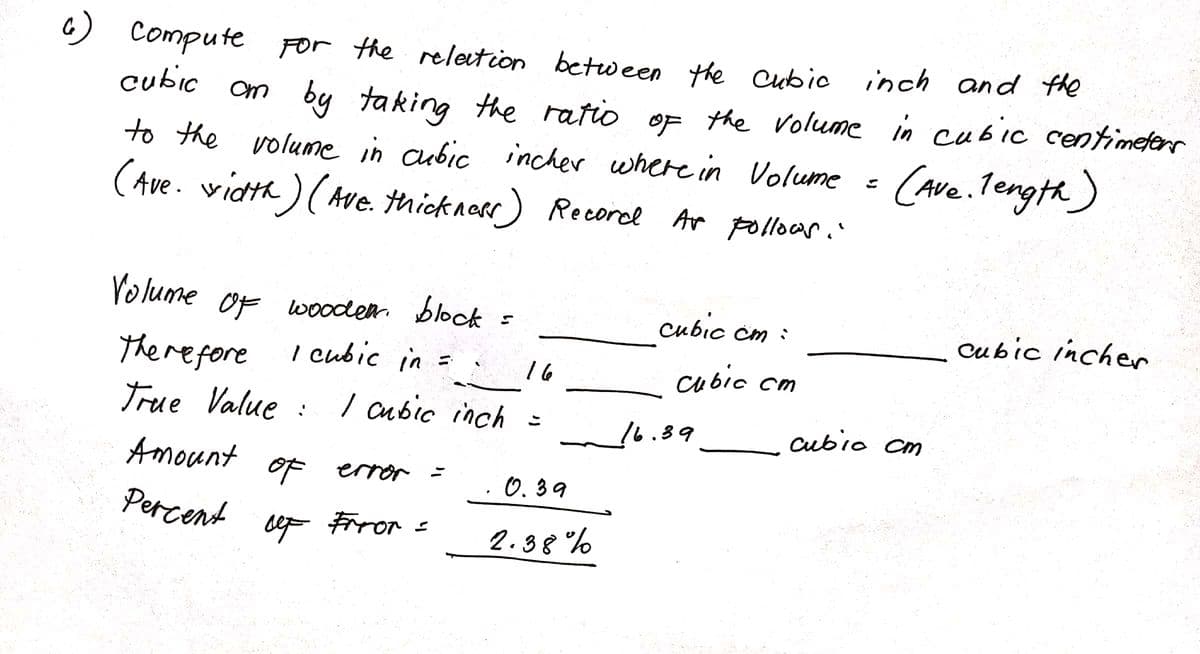 6) Compute For the relation between the cubic inch and the
cubic cm by taking the ratio of the volume in cubic centimeters
to the volume in cubic inches wherein Volume = (Ave. length)
(Ave. width) (Ave. thickness) Record As follows:
Volume of wooden block = ____ cubic cm : ____ cubic inches
Therefore 1 cubic in = 16 cubic cm
True Value : 1 cubic inch = 16.39 cubic cm
Amount of error = 0.39
Percent of Error = 2.38 %